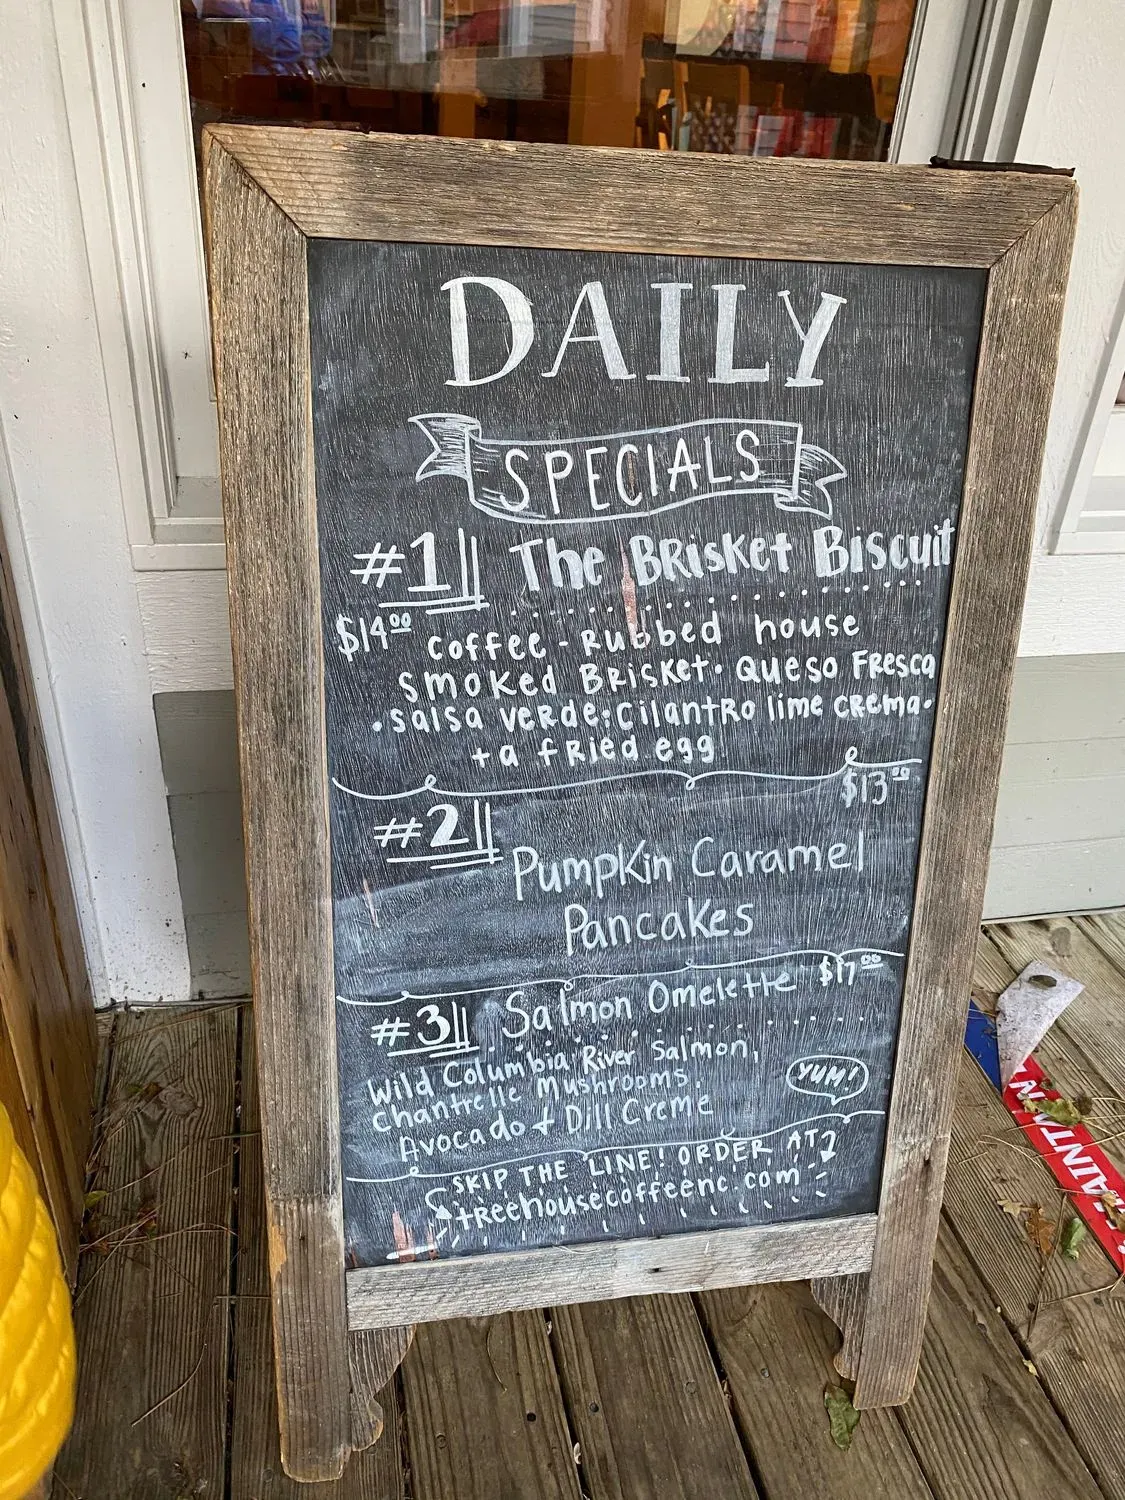 DAILY
SPECIALS
#1 The BRisket Biscuit
$14.00 coffee - Rubbed house
smoked BRisket • Queso Fresca
• salsa verde • cilantro lime crema •
+ a fried egg
$13.00
#2
Pumpkin Caramel
Pancakes
#3 Salmon Omelette $17.00
Wild Columbia River Salmon,
Chantrelle Mushrooms,
Avocado + Dill Creme
YUM!
SKIP THE LINE! ORDER AT
treehousecoffeenc.com